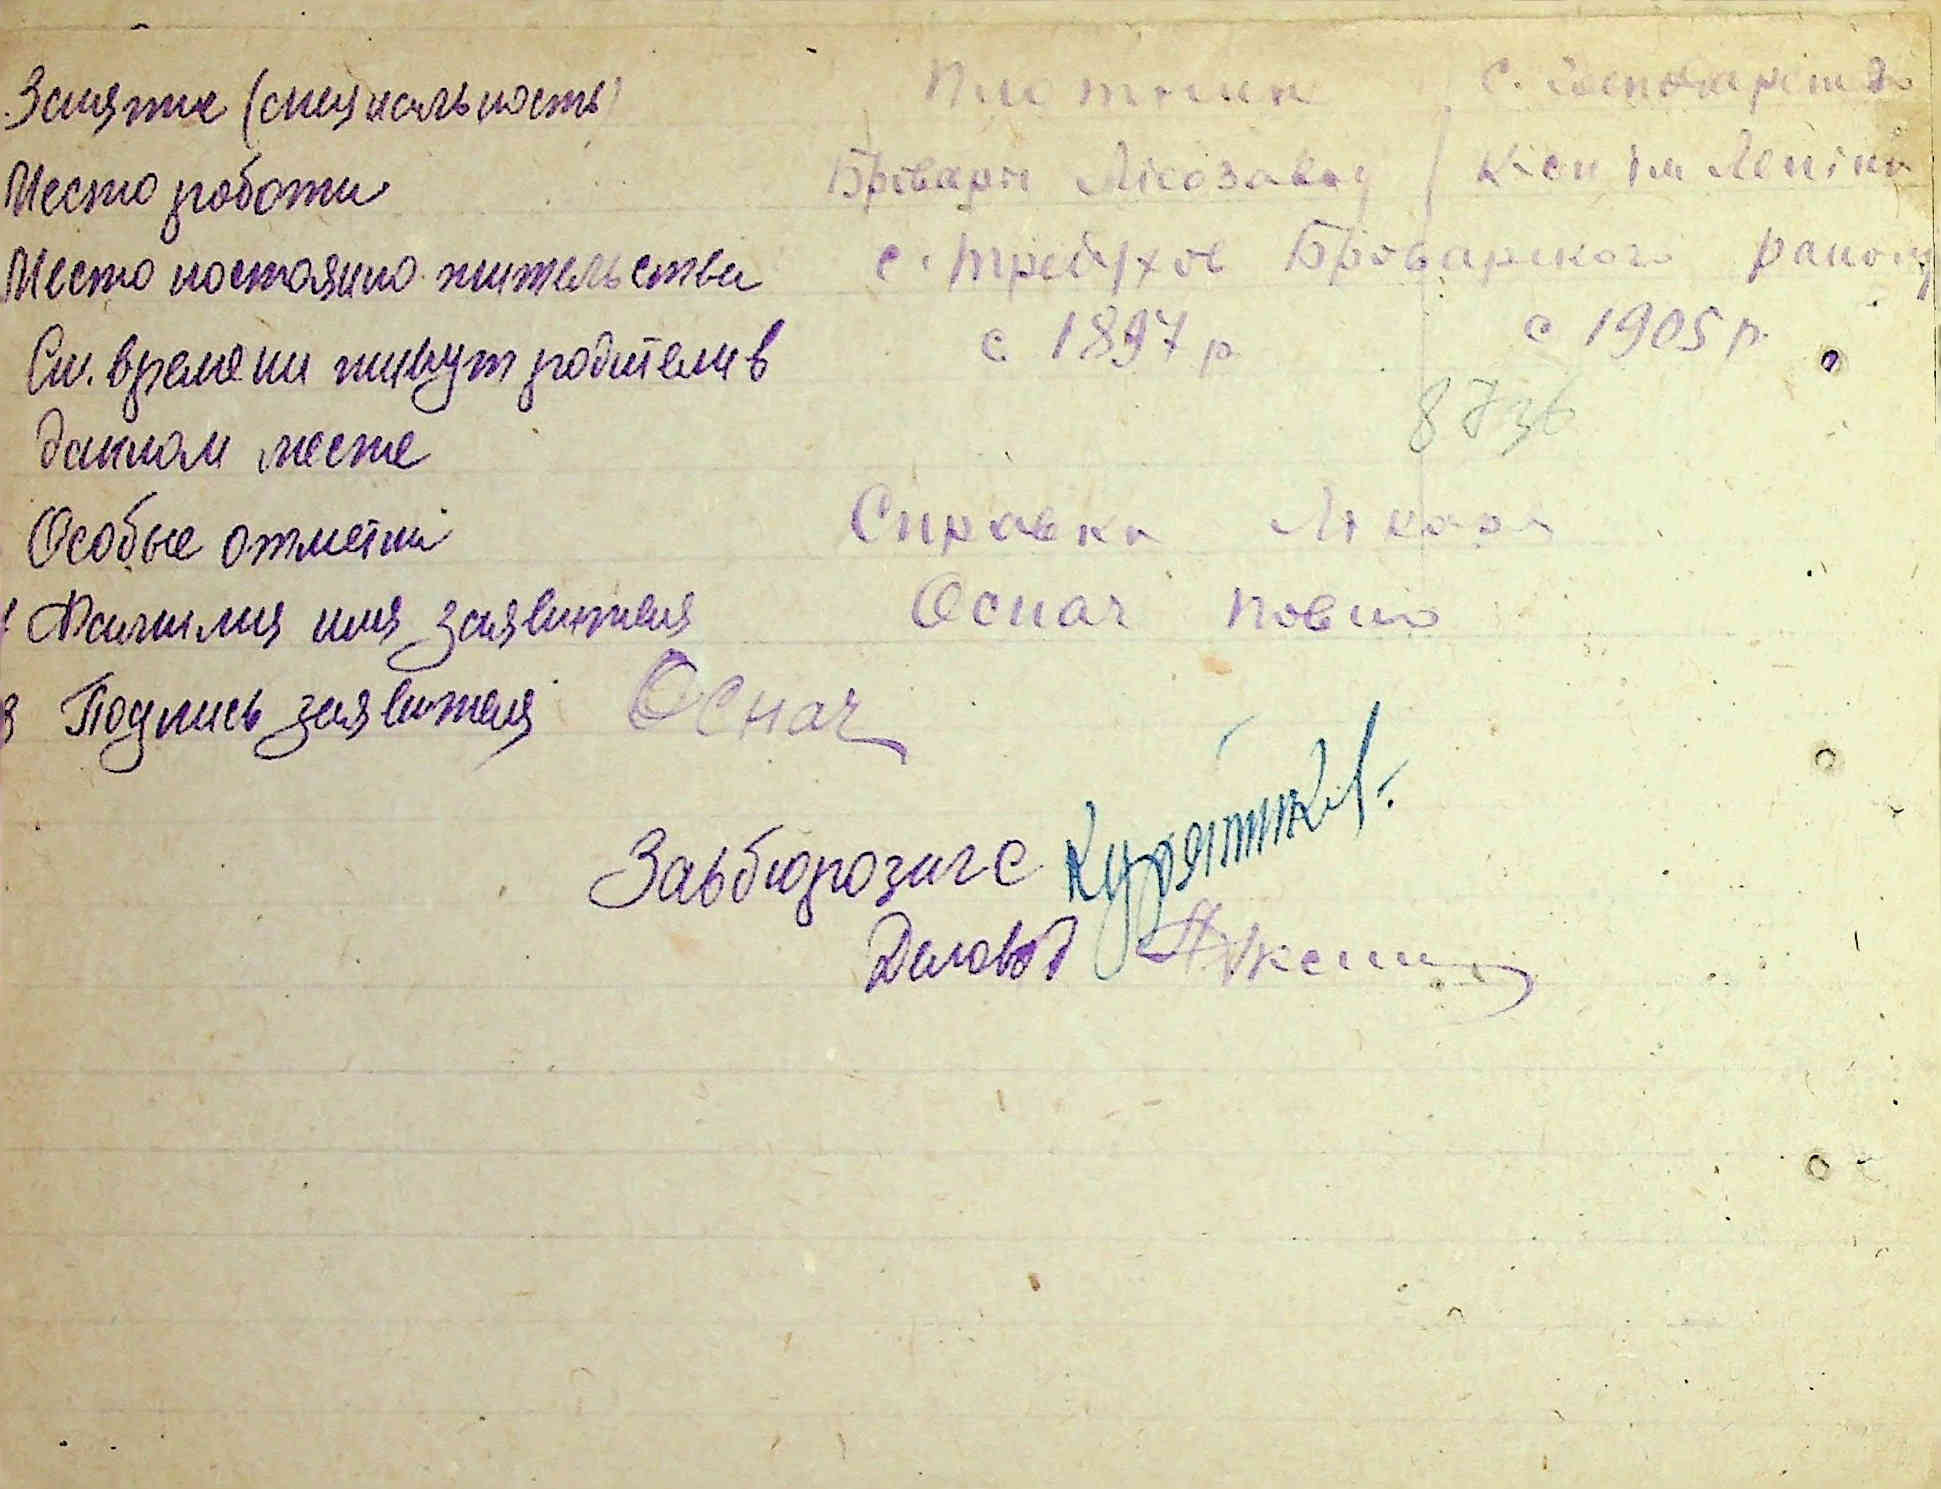 Занятие (специальность) Плотник с. господарство
Место роботи Бровари Лісозавод К-сп ім Леніна
Место постоянно жительства с. Требухов Броварского району
Ск. времени живут родители в с 1897 р. с 1905 р.
данном месте
Особые отметки Справка Лікаря
Фамилия имя заявителя Оснач Повло
8 Подпись заявителя Оснач
Завбюрозагс
Деловод